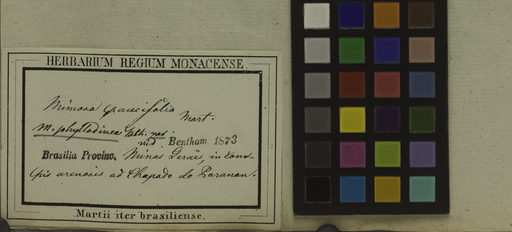 HERBARIUM REGIUM MONACENSE.
Mimosa paucifolia Mart.
M. phyllodinea Bth. var.
vid Bentham 1873
Brasilia Provinc. Minas Geraës, in cam-
pis arenosis ad Chapado do Paranan.
Martii iter brasiliense.